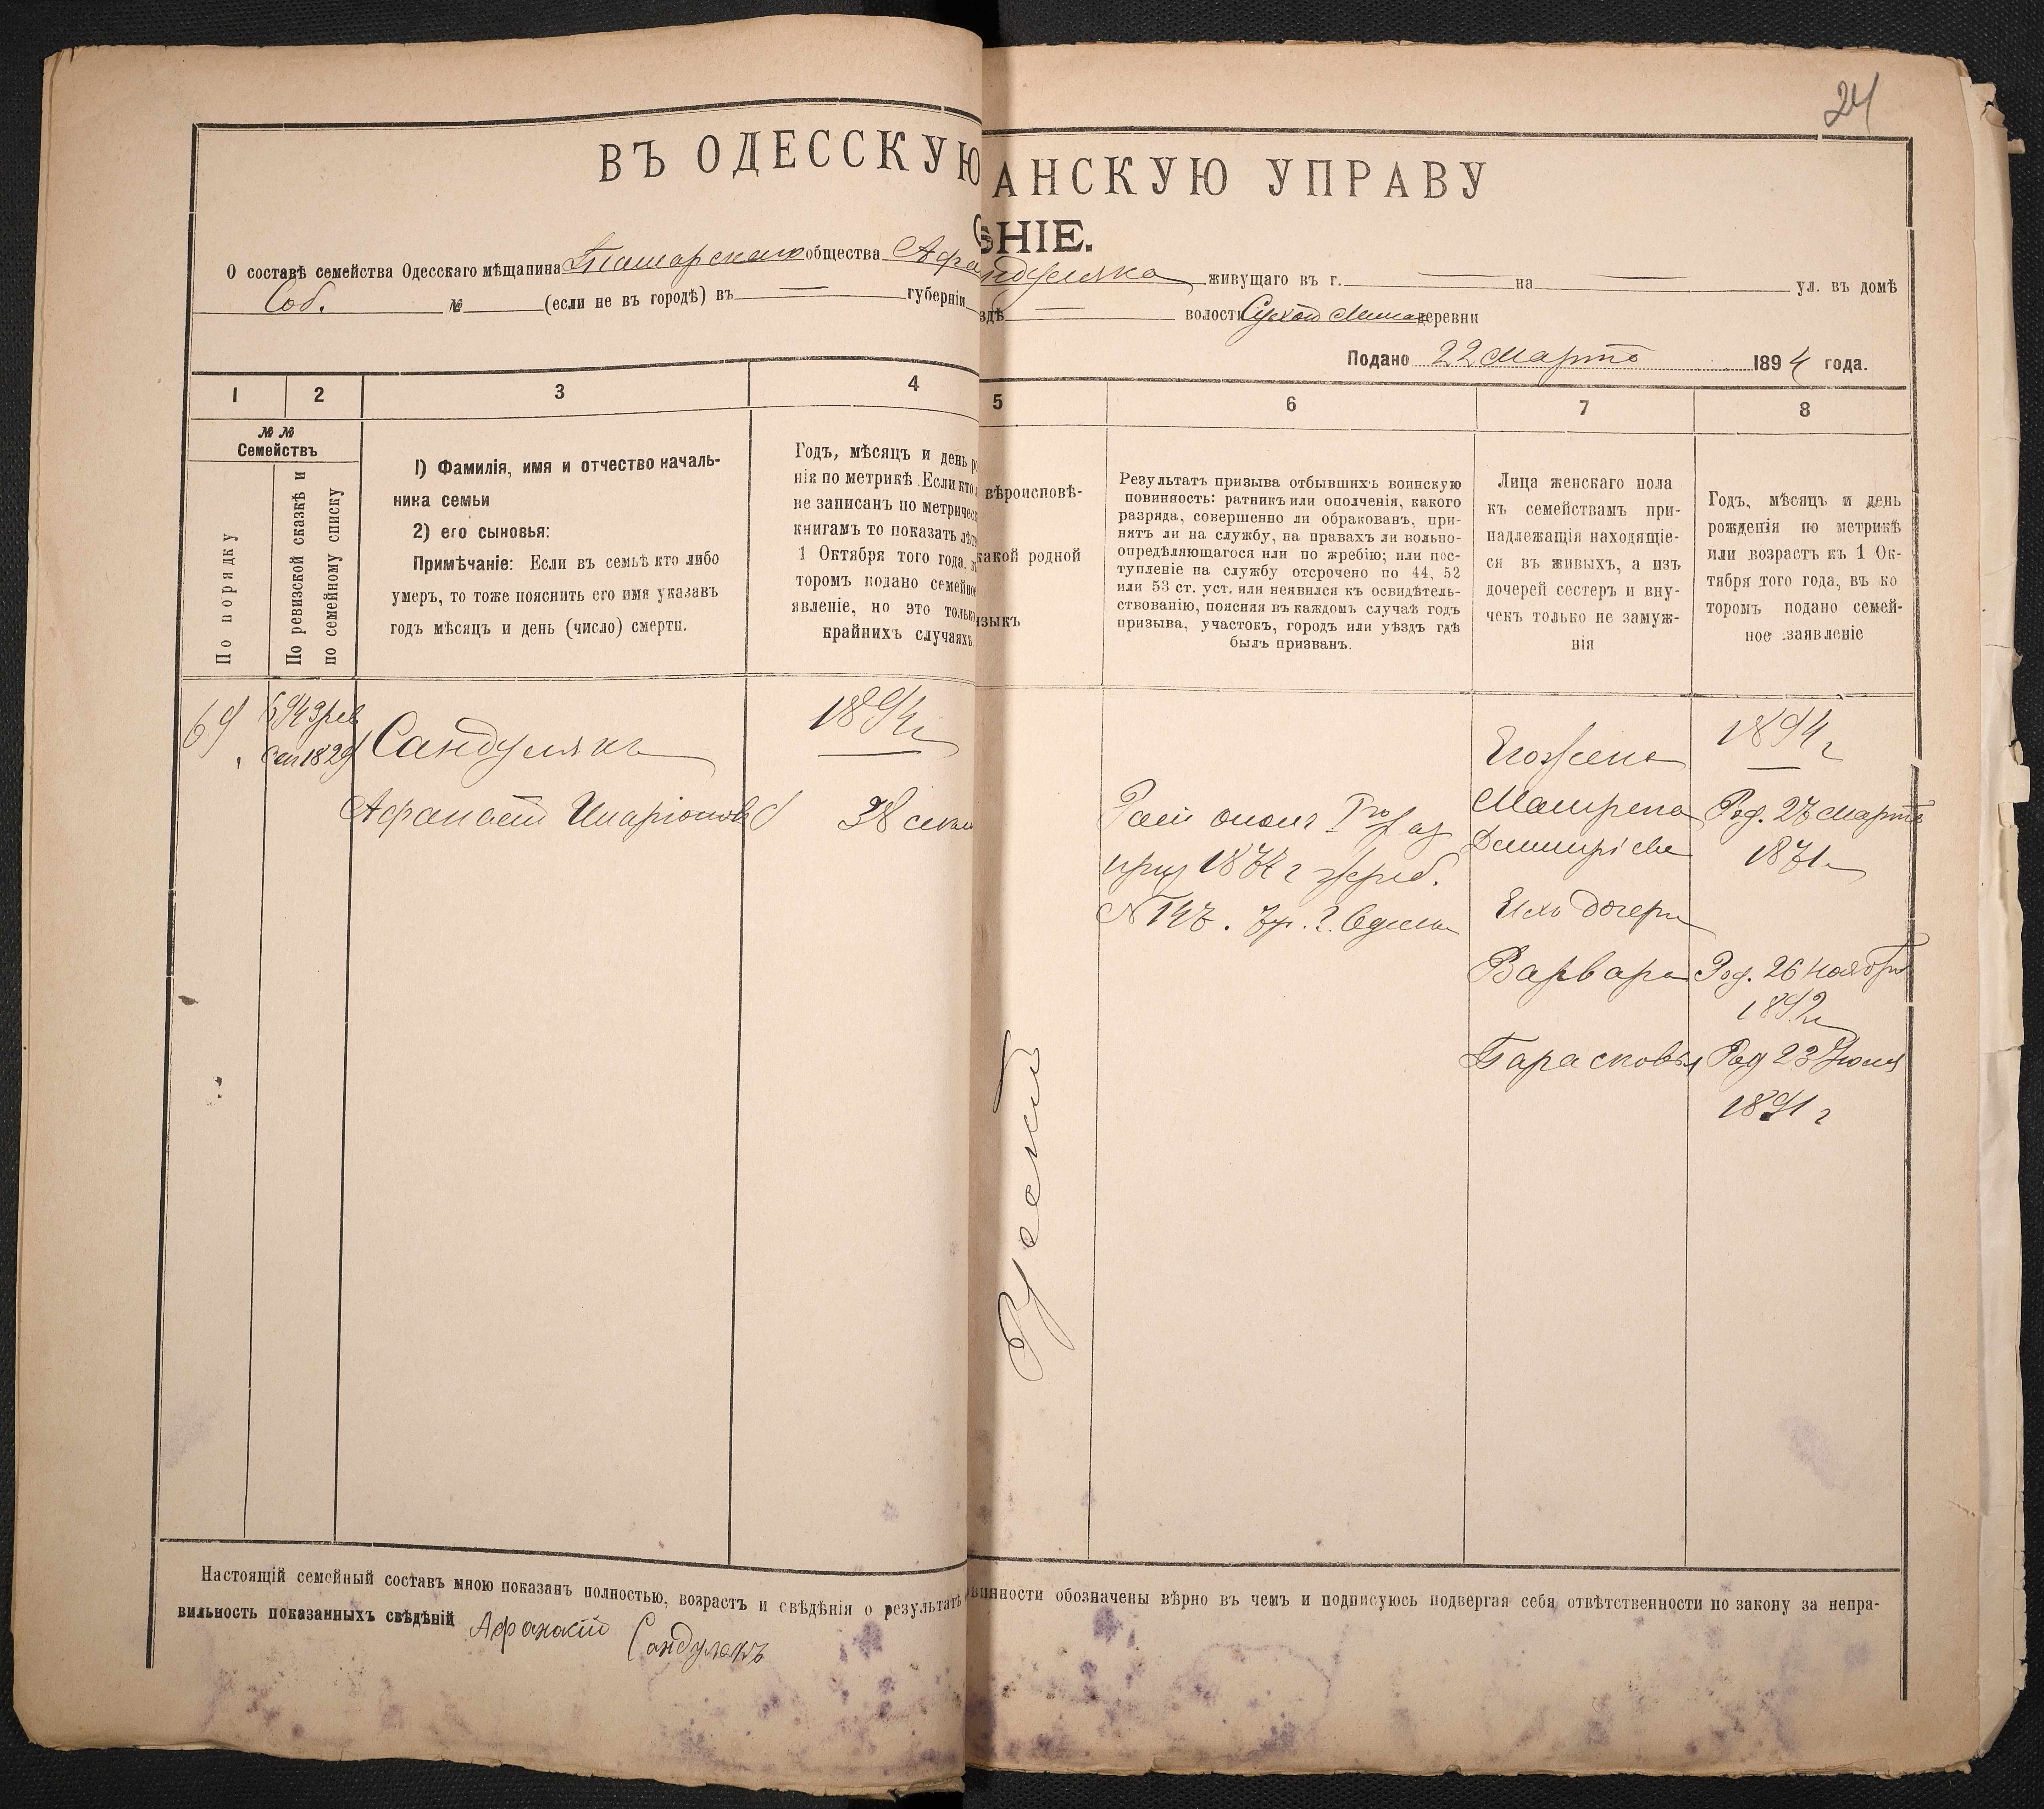 24
ВЪ ОДЕССКУЮ АНСКУЮ УПРАВУ
ЕНІЕ.
О составѣ семейства Одесскаго мѣщанина Татарскаго общества Афа ндуляка живущаго въ г. — на — ул. въ домѣ
Соб. № (если не въ городѣ) въ — губерніи здѣ — волости Сухой Лиман деревни
Подано 22 Марта 1894 года.
1 2 3 4 5 6 7 8
№ № Семействъ
По порядку
По ревизской сказкѣ и
по семейному списку
1) Фамилія, имя и отчество началь-
ника семьи
2) его сыновья:
Примѣчаніе: Если въ семьѣ кто либо
умеръ, то тоже пояснить его имя указавъ
годъ мѣсяцъ и день (число) смерти.
Годъ, мѣсяцъ и день ро
нія по метрикѣ. Если кто л
не записанъ по метричес
книгамъ то показать лѣта
1 Октября того года, въ
торомъ подано семейное
явленіе, но это только
крайнихъ случаяхъ.
вѣроисповѣ-
какой родной
языкъ
Результатъ призыва отбывшихъ воинскую
повинность: ратникъ или ополченія, какого
разряда, совершенно ли обракованъ, при-
нятъ ли на службу, на правахъ ли вольно-
опредѣляющагося или по жребію; или пос-
тупленіе на службу отсрочено по 44, 52
или 53 ст. уст. или неявился къ освидѣтель-
ствованію, поясняя въ каждомъ случаѣ годъ
призыва, участокъ, городъ или уѣздъ гдѣ
былъ призванъ.
Лица женскаго пола
къ семействамъ при-
надлежащія находящіе-
ся въ живыхъ, а изъ
дочерей сестеръ и вну-
чекъ только не замуж-
нія
Годъ, мѣсяцъ и день
рожденія по метрикѣ
или возрастъ къ 1 Ок-
тября того года, въ ко
торомъ подано семей-
ное заявленіе
69
Сандулякъ
Афанасій Иларіоновъ
1894 г
38
Русскій
N 147.
Его жена
Матрена
Дмитріева
Ихъ дочери
Варвара
Парасковья
1894 г
Род. 27 Марта
1871 г
Род. 26 Ноября
1892 г
Род 23 Іюля
1891 г
Настоящій семейный составъ мною показанъ полностью, возрастъ и свѣдѣнія о результатѣ винности обозначены вѣрно въ чемъ и подписуюсь подвергая себя отвѣтственности по закону за непра-
вильность показанныхъ свѣдѣній Афанасій Сандулякъ